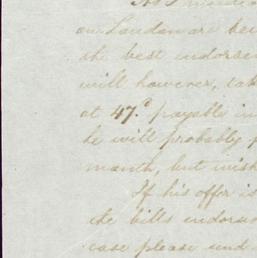 on London are
the best endorse
will however, ta
at 47.c payable in
he will probably
month, but wish
If his offer is
the bills endorse
case please send